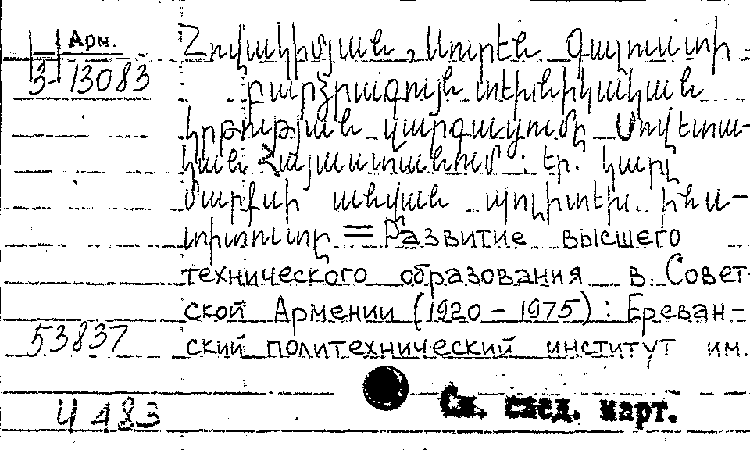 Арм.
3-13083
Հովակիմյան, Սուրեն Գալուստի
Բարձրագույն տեխնիկական
կրթության զարգացումը Սովետա-
կան Հայաստանում : Եր. Կարլ
Մարքսի անվան պոլիտեխ. ինս-
տիտուտը = Развитие высшего
технического образования в Совет-
ской Армении (1920 - 1975) : Ереван-
53837
ский политехнический институт им.
4483
См. след. карт.